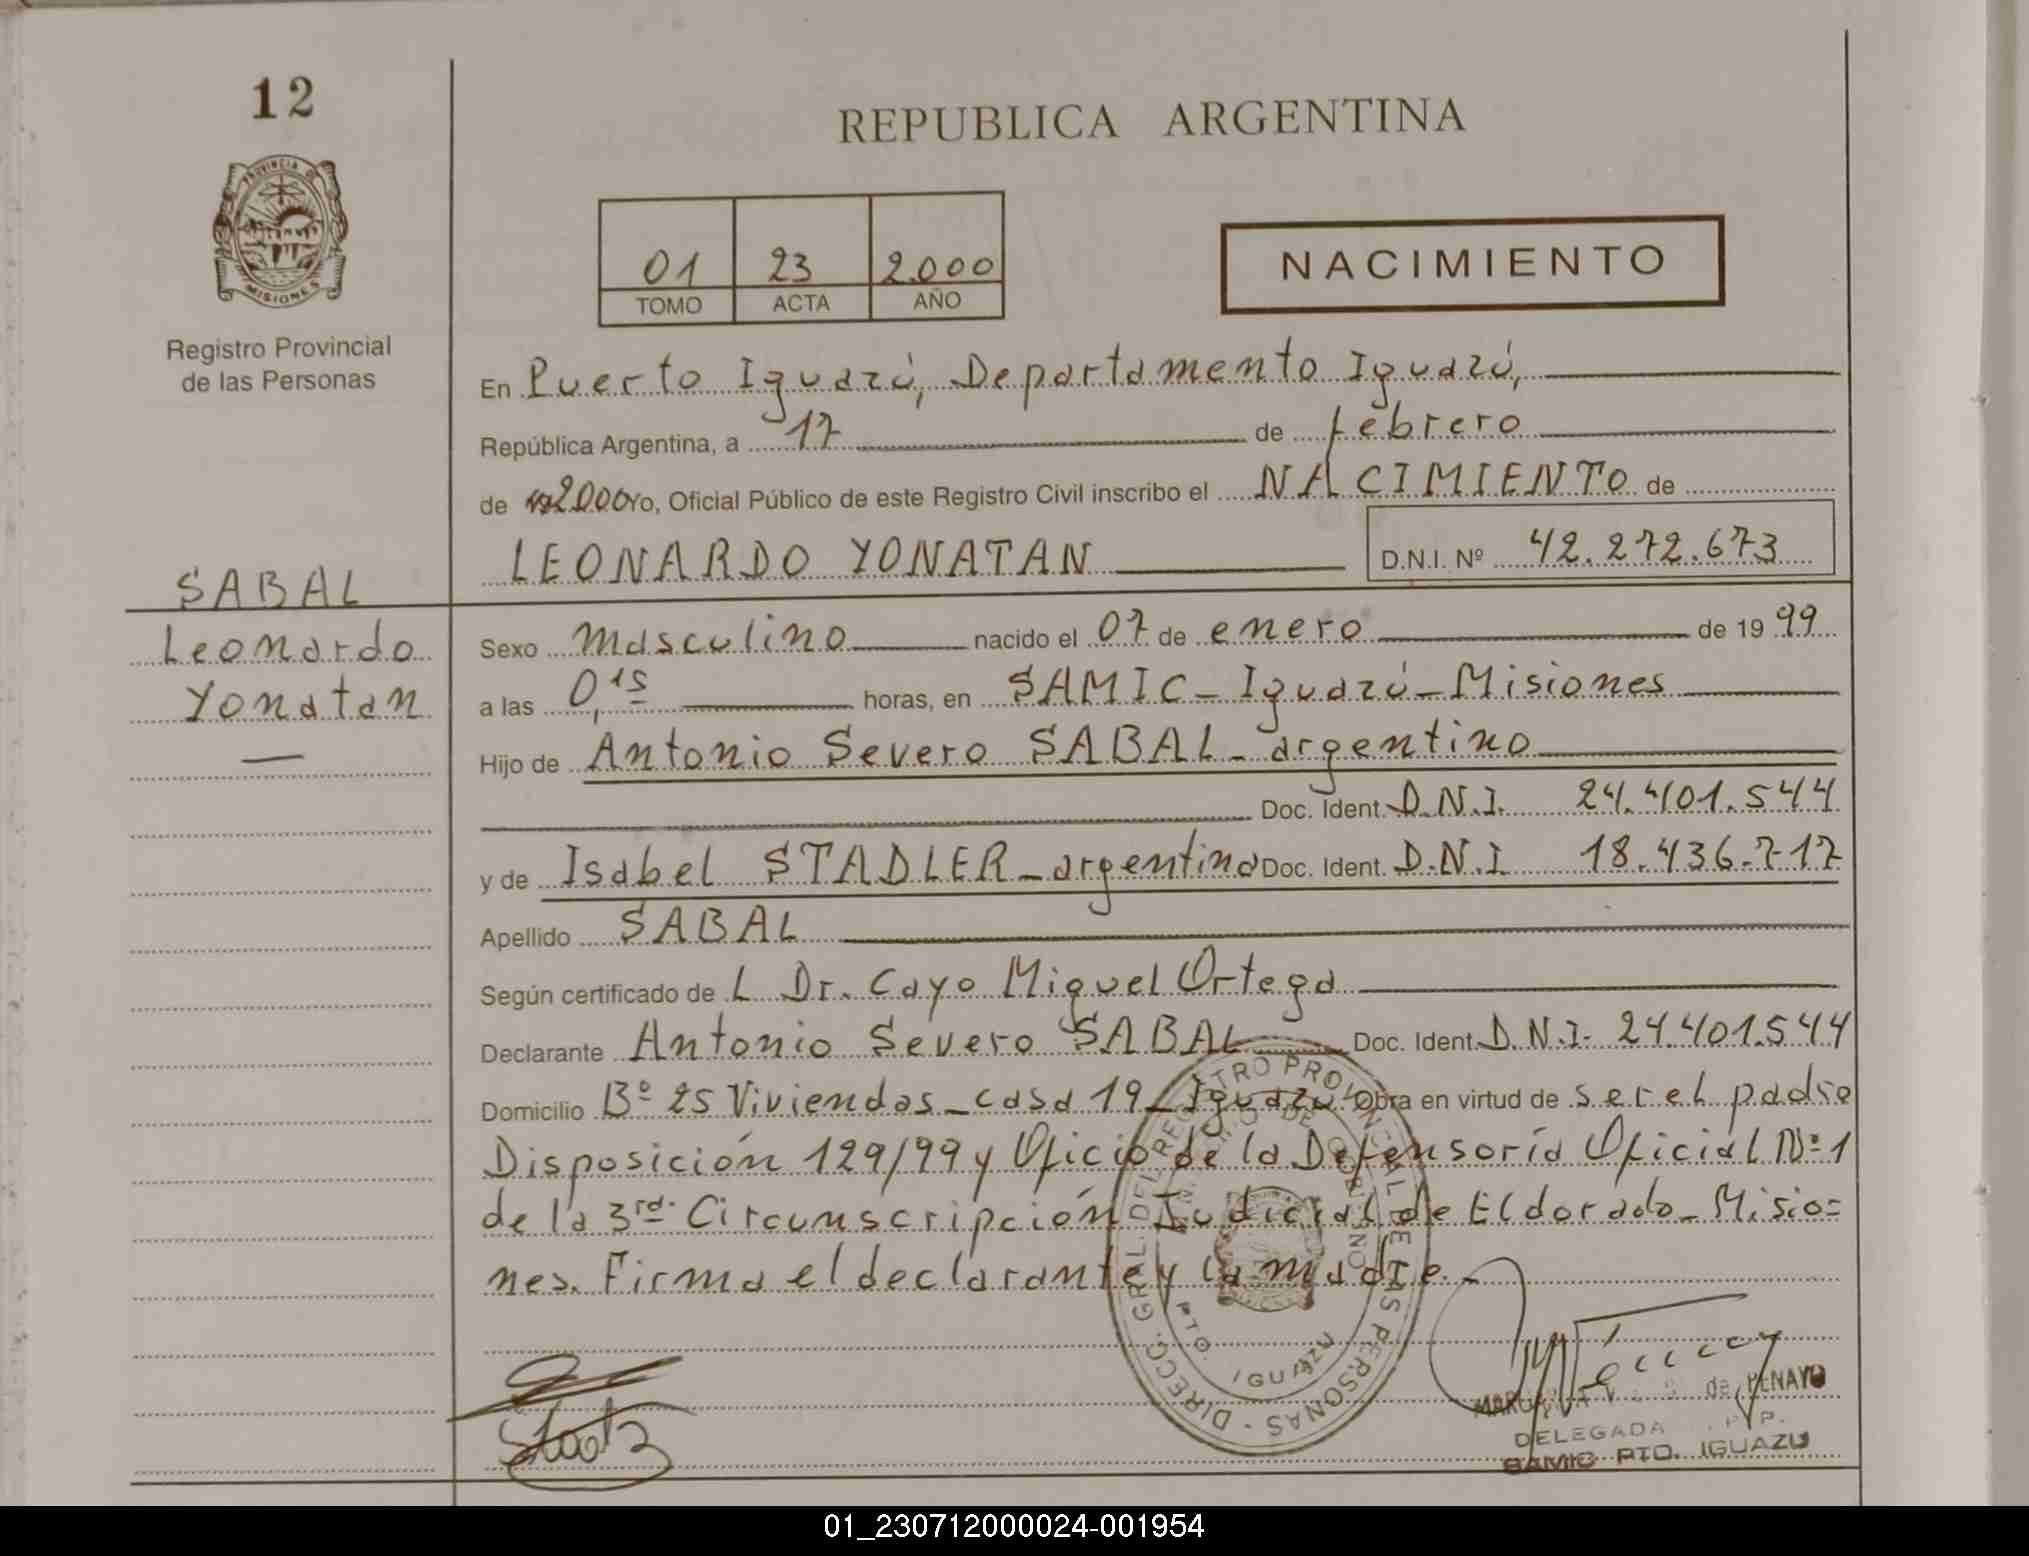 12
REPUBLICA ARGENTINA
PROVINCIA DE
MISIONES
Registro Provincial
de las Personas
01 23 2.000
TOMO ACTA AÑO
NACIMIENTO
En Puerto Iguazú, Departamento Iguazú,
República Argentina, a 17 de febrero
de 2000 yo, Oficial Público de este Registro Civil inscribo el NACIMIENTO de
LEONARDO YONATAN D.N.I. Nº 42.272.673
SABAL
Leonardo
Yonatan
Sexo masculino nacido el 07 de enero de 1999
a las 0,15 horas, en SAMIC - Iguazú - Misiones
Hijo de Antonio Severo SABAL - argentino
Doc. Ident. D.N.I. 24.401.544
y de Isabel STADLER - argentina Doc. Ident. D.N.I 18.436.717
Apellido SABAL
Según certificado de L Dr. Cayo Miguel Ortega
Declarante Antonio Severo SABAL Doc. Ident. D.N.I. 24.401.544
Domicilio Bº 25 Viviendas - casa 19 - Iguazú Obra en virtud de ser el padre
Disposición 129/99 y Oficio de la Defensoría Oficial Nº 1
de la 3ra. Circunscripción Judicial de Eldorado - Misio=
nes. Firma el declarante y la madre. -
DIRECC. GRAL. DEL REGISTRO PROVINCIAL DE LAS PERSONAS
PTO. IGUAZU
de PENAYO
DELEGADA
SAMIC PTO. IGUAZU
01_230712000024-001954